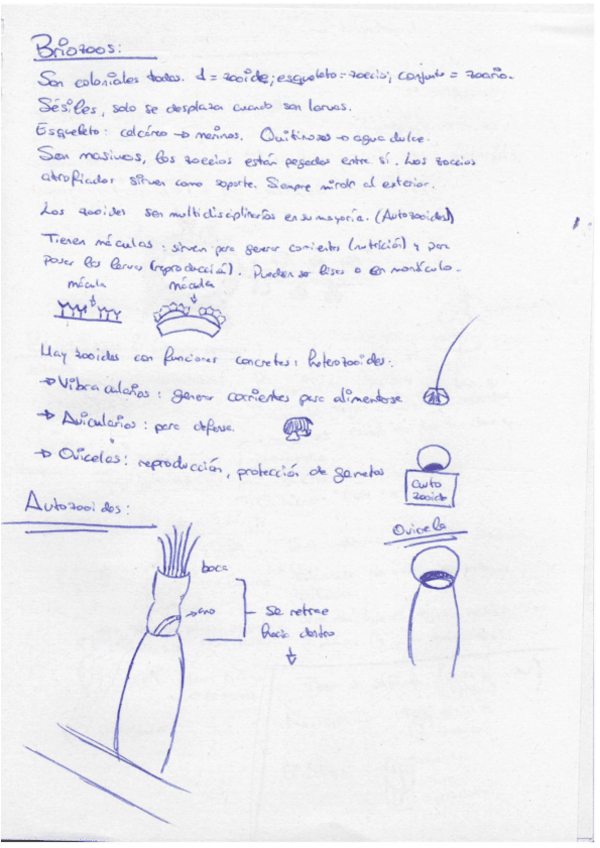 Briozoos:
Son coloniales todos. 1 = zooide; esqueleto = zoecio; conjunto = zoario.
Sésiles, solo se desplaza cuando son larvas.
Esqueleto: calcáreo → marinos. Quitinosos → agua dulce.
Son masivos, los zoecios están pegados entre sí. Los zoecios
atrofiados sirven como soporte. Siempre miran al exterior.
Los zooides son multidisciplinarios en su mayoría. (Autozooides)
Tienen máculas: sirven para generar corrientes (nutrición) y para
posar las larvas (reproducción). Pueden ser lisas o en montículo.
mácula mácula
Hay zooides con funciones concretas: heterozooides:
→ Vibracularios: generar corrientes para alimentarse
→ Avicularios: para defensa.
→ Ovicelas: reproducción, protección de gametos
auto
zooide
Autozooides:
Ovicela
boca
→ ano
se retrae
hacia dentro
↓